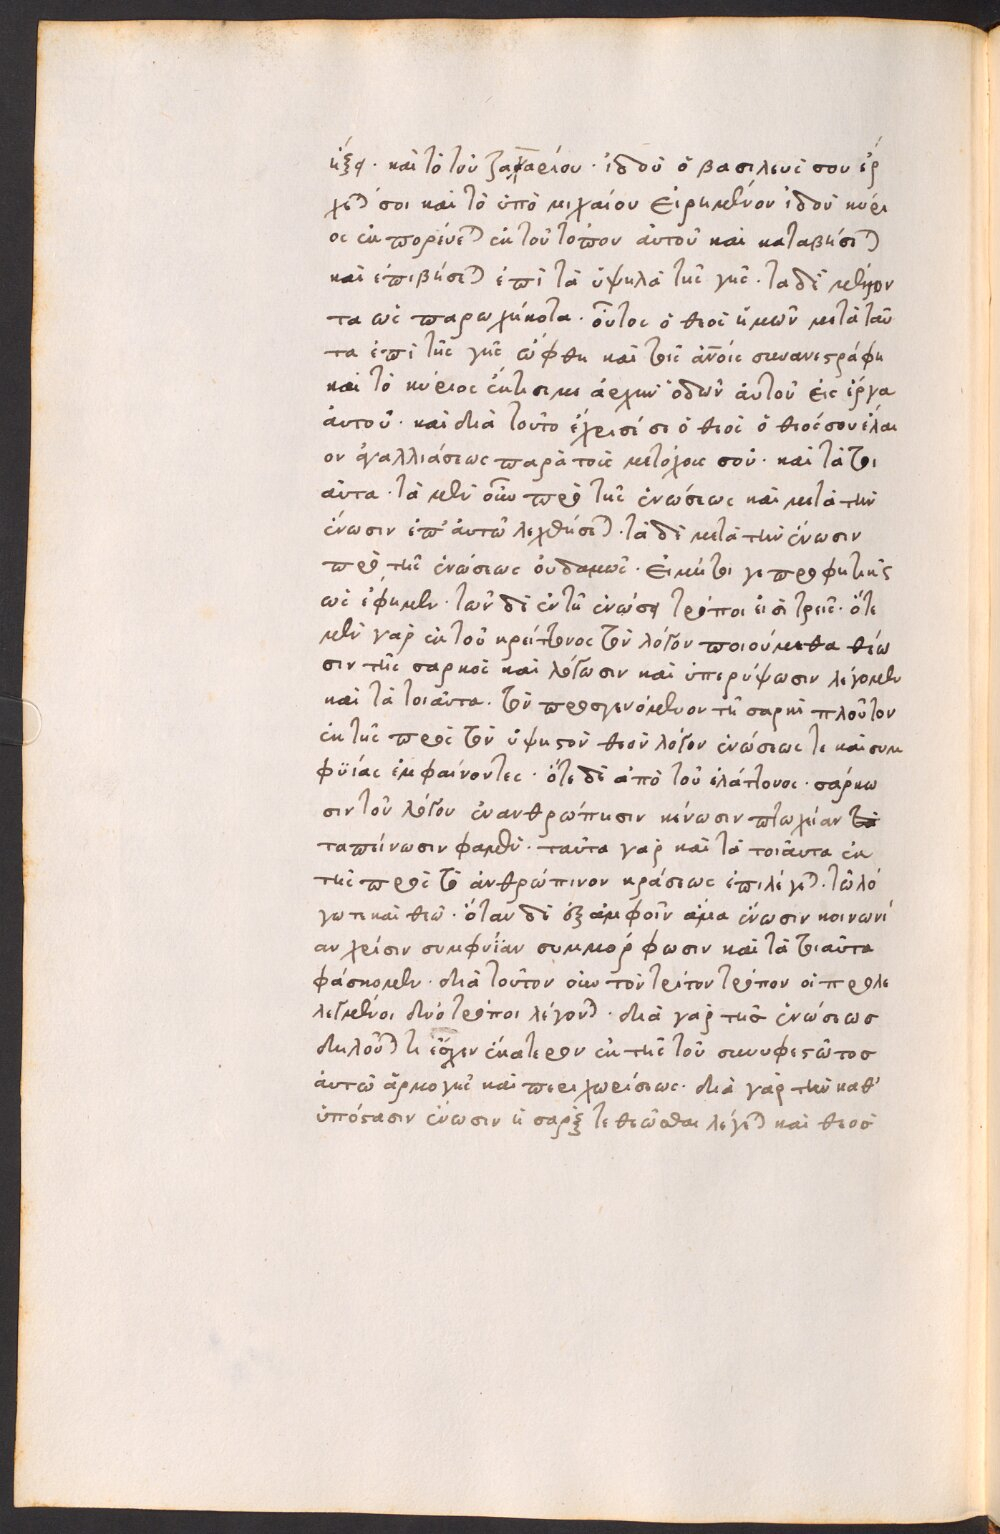 ἥξει · καὶ τὸ τοῦ ζαχαρίου · ἰδοὺ ὁ βασιλεύς σου ἔρ
χεται σοι καὶ τὸ ὑπὸ μιχαίου εἰρημένον ἰδοὺ κύρι
ος ἐκπορεύεται ἐκ τοῦ τόπου αὐτοῦ καὶ καταβήσεται
καὶ ἐπιβήσεται ἐπὶ τὰ ὑψηλὰ τῆς γῆς · τὰ δὲ μέλλον
τα ὡς παρωχήκοτα · οὗτος ὁ θεὸς ἡμῶν μετὰ ταῦ
τα ἐπὶ τῆς γῆς ὤφθη καὶ τοῖς ἀνοις συνανεστράφη
καὶ τὸ κύριος ἔκτισέ με ἀρχὴν ὁδῶν αὐτοῦ εἰς ἔργα
αὐτοῦ · καὶ διὰ τοῦτο ἔχρισέ σε ὁ θεὸς ὁ θεός σου ἔλαι
ον ἀγαλλιάσεως παρὰ τοὺς μετόχους σου · καὶ τὰ τοι
αῦτα · τὰ μὲν οὖν πρὸ τῆς ἑνώσεως καὶ μετὰ τὴν
ἕνωσιν ἐπ' αὐτῶ λεχθήσεται · τὰ δὲ μετὰ τὴν ἕνωσιν
πρὸ τῆς ἑνώσεως οὐδαμῶς · εἰ μή τοι γε προφητικῶς
ὡς ἔφημεν · τῶν δὲ ἐν τῆ ἑνώσει τρόποι εἰσὶ τρεῖς · ὅτε
μὲν γὰρ ἐκ τοῦ κρείττονος τὸν λόγον ποιούμεθα θέω
σιν τῆς σαρκὸς καὶ λόγωσιν καὶ ὑπερύψωσιν λέγομεν
καὶ τὰ τοιαῦτα · τὸν προσγενόμενον τῆ σαρκὶ πλοῦτον
ἐκ τῆς πρὸς τὸν ὕψιστον θεὸν λόγον ἑνώσεώς τε καὶ συμ
φυΐας ἐμφαίνοντες · ὅτε δὲ ἀπὸ τοῦ ἐλάττονος · σάρκω
σιν τοῦ λόγου ἐνανθρώπησιν κένωσιν πτωχείαν
ταπείνωσιν φαμέν · ταῦτα γὰρ καὶ τὰ τοιαῦτα ἐκ
τῆς πρὸς τὸ ἀνθρώπινον κράσεως ἐπιλέγεται · τῶ λό
γω τε καὶ θεῶ · ὅταν δὲ ἐξ ἀμφοῖν ἅμα ἕνωσιν κοινωνί
αν χρίσιν συμφυΐαν συμμόρφωσιν καὶ τὰ τοιαῦτα
φάσκομεν · διὰ τοῦτον οὖν τὸν τρίτον τρόπον οἱ προλε
λεγμένοι δύο τρόποι λέγονται · διὰ γὰρ τῆς ἑνώσεως
δηλοῦται τί ἔσχεν ἑκάτερον ἐκ τῆς τοῦ συνυφεστῶτος
αὐτῶ ἁρμογῆς καὶ περιχωρήσεως · διὰ γὰρ τὴν καθ'
ὑπόστασιν ἕνωσιν ἡ σάρξ τεθεῶσθαι λέγεται καὶ θεὸς